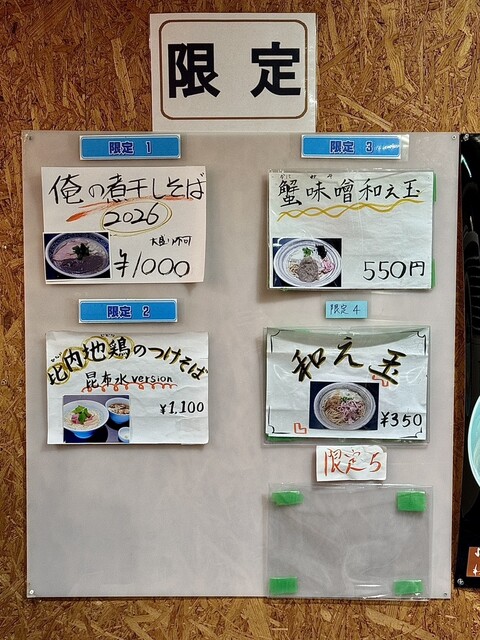 限定
限定 1
俺の煮干しそば
2026
大盛り不可
¥1000
限定 2
比内地鶏のつけそば
昆布水version
¥1,100
限定 3
蟹味噌和え玉
550円
限定 4
和え玉
¥350
限定5